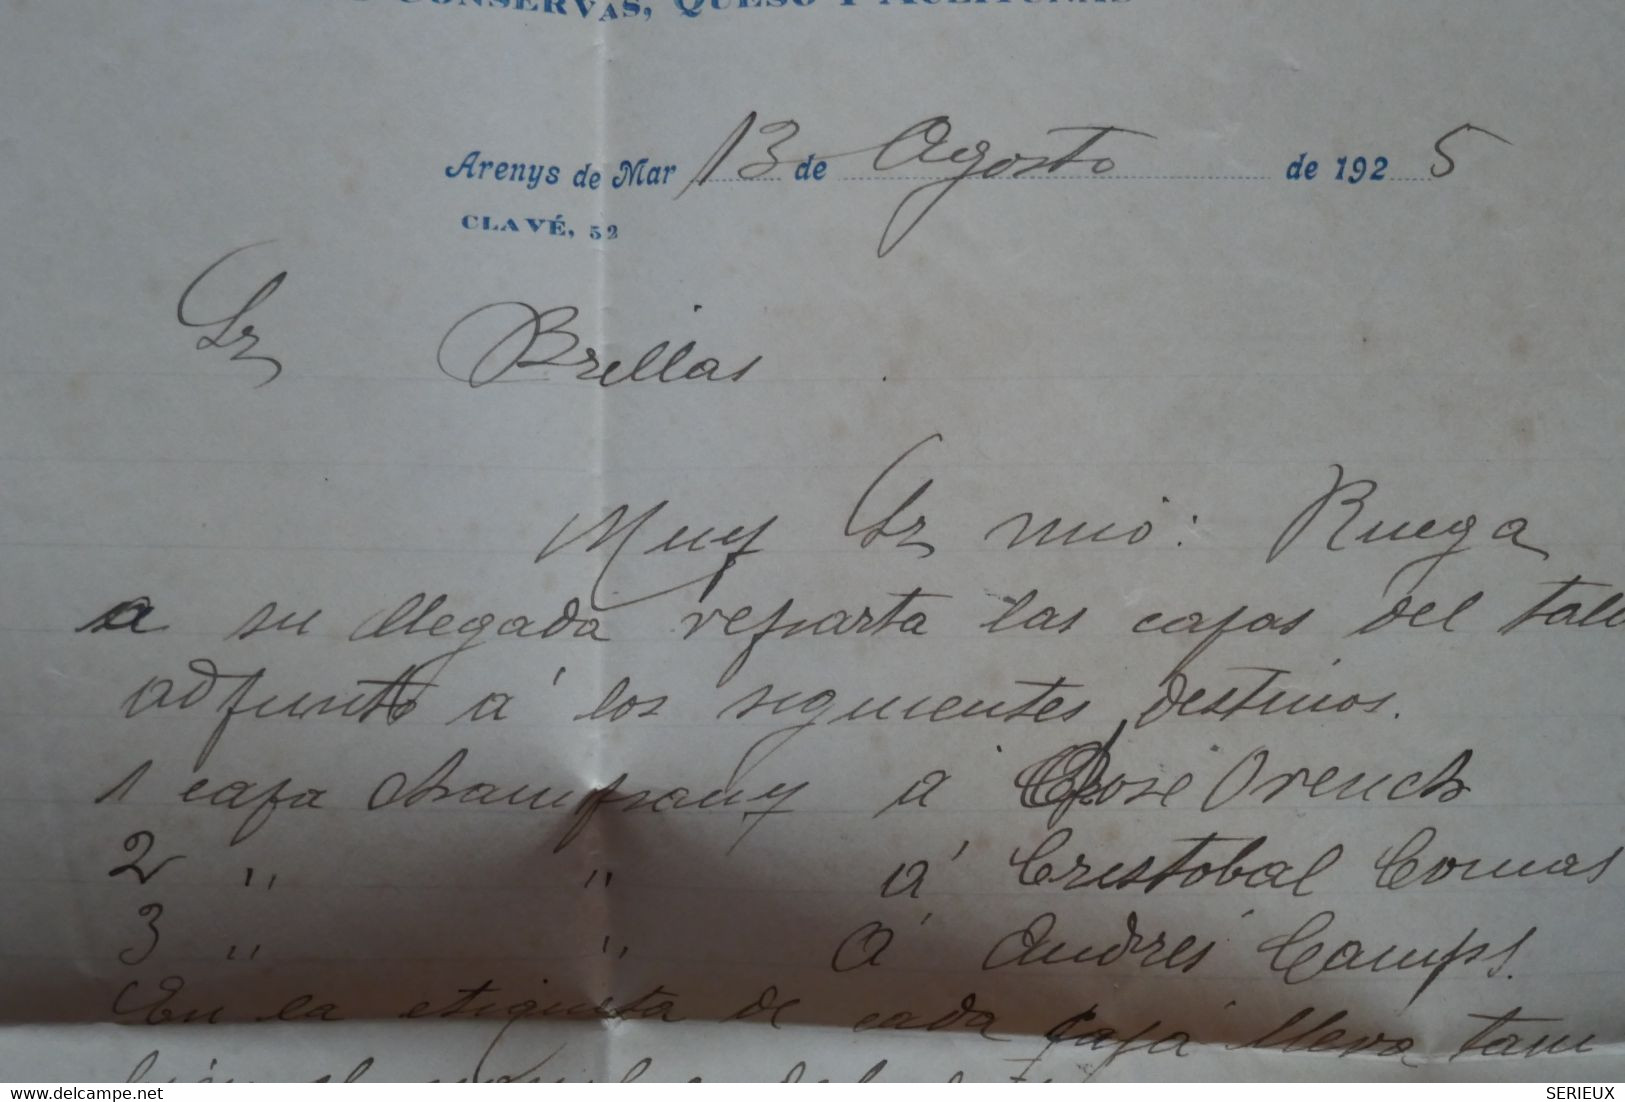 CONSERVAS, QUESO Y ACEITUNAS
Arenys de Mar 13 de Agosto de 1925
CLAVÉ, 52
Sr Brillas
Muy Sr mio: Ruega
a su llegada reparta las cajas del talo
adjunto á los siguientes destinos.
1 caja champany a José Orench
2 " " á Cristobal Comas
3 " " á Andrés Camps.
En la etiqueta de cada caja lleva tam
bién el nombre del
delcampe.net
SERIEUX